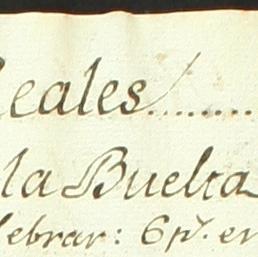 Reales........
la Buelta
lebrar: 6 p.^s en